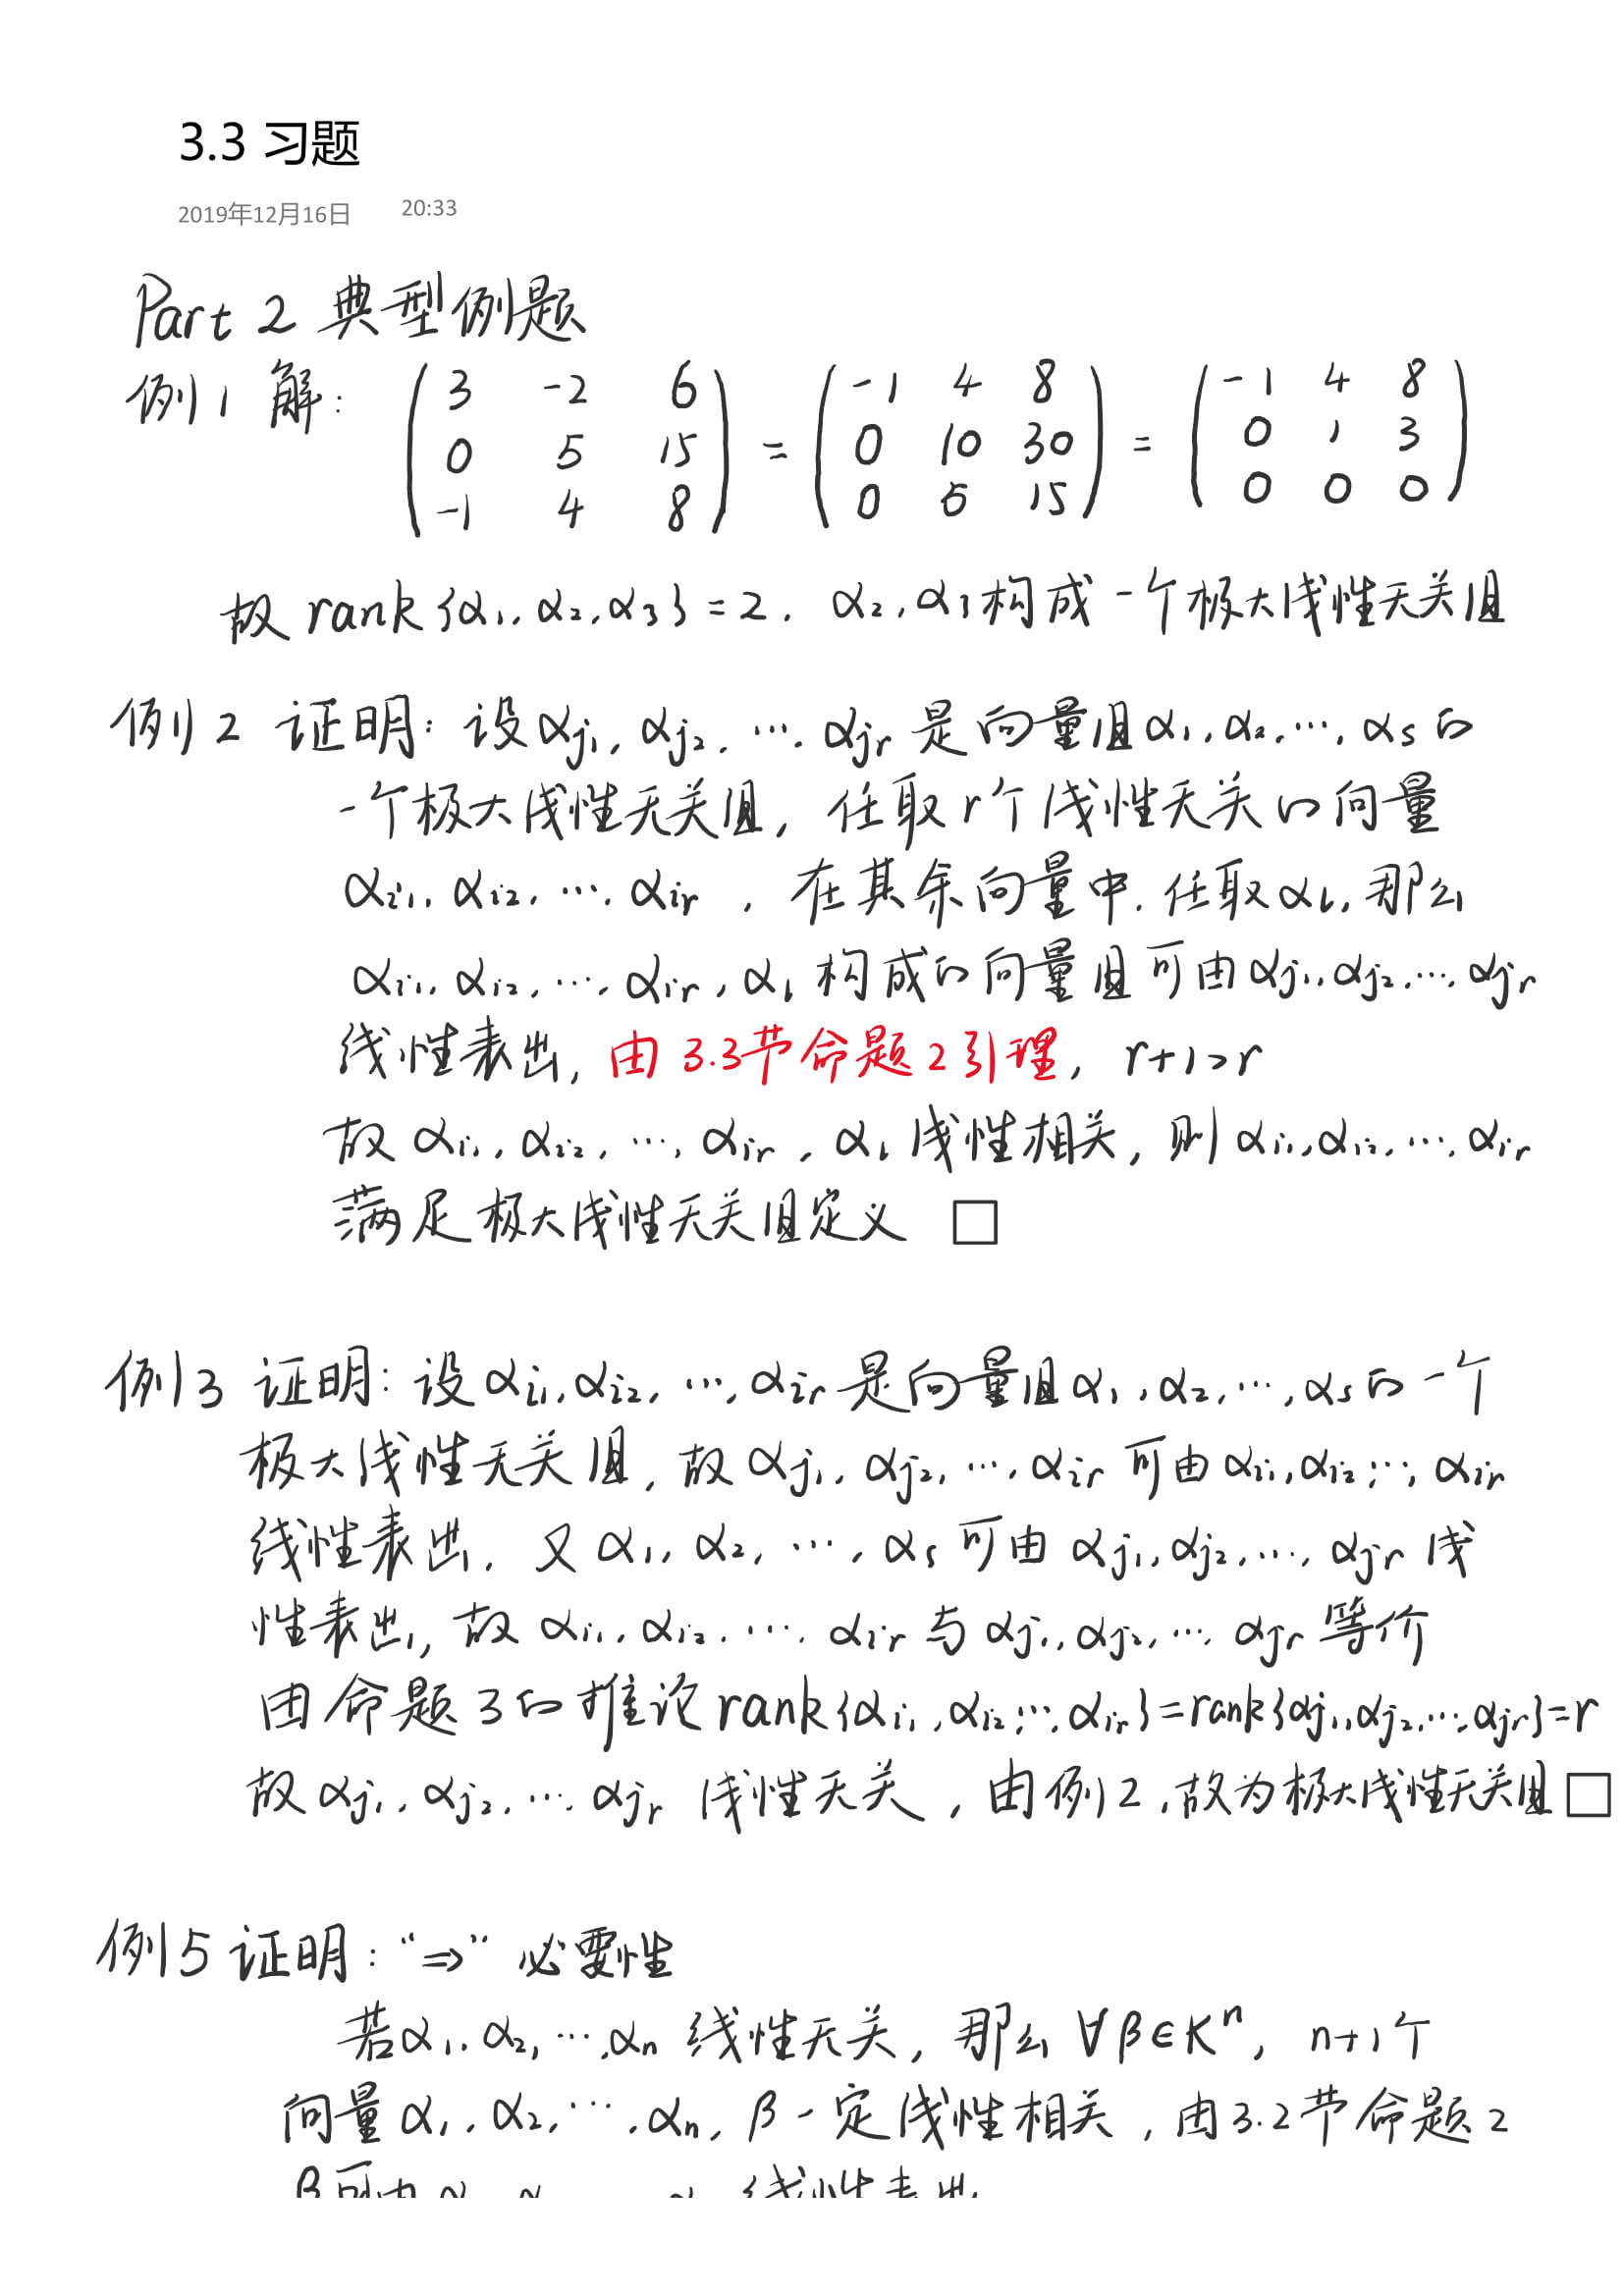 3.3 习题
2019年12月16日 20:33
Part 2 典型例题
例1 解: (3 -2 6; 0 5 15; -1 4 8) = (-1 4 8; 0 10 30; 0 5 15) = (-1 4 8; 0 1 3; 0 0 0)
故 rank{α₁, α₂, α₃} = 2. α₂, α₃构成一个极大线性无关组
例2 证明: 设αj₁, αj₂, …, αjr 是向量组α₁, α₂, …, αs的
一个极大线性无关组, 任取r个线性无关的向量
αi₁, αi₂, …, αir , 在其余向量中. 任取αl, 那么
αi₁, αi₂, …, αir, αl构成的向量组可由αj₁, αj₂, …, αjr
线性表出, 由 3.3节命题2引理, r+1>r
故 αi₁, αi₂, …, αir, αl 线性相关, 则 αi₁, αi₂, …, αir
满足极大线性无关组定义 □
例3 证明: 设αi₁, αi₂, …, αir是向量组α₁, α₂, …, αs的一个
极大线性无关组, 故 αj₁, αj₂, …, αir 可由 αi₁, αi₂, …, αir
线性表出, 又 α₁, α₂, …, αs 可由 αj₁, αj₂, …, αjr 线
性表出, 故 αi₁, αi₂, …, αir 与 αj₁, αj₂, …, αjr 等价
由命题3的推论rank{αi₁, αi₂, …, αir}=rank{αj₁, αj₂, …, αjr}=r
故 αj₁, αj₂, …, αjr 线性无关, 由例2, 故为极大线性无关组 □
例5 证明: “⇒” 必要性
若α₁, α₂, …, αn 线性无关, 那么 ∀β∈Kⁿ, n+1个
向量 α₁, α₂, …, αn, β一定线性相关, 由3.2节命题2
β可由 α α … α 线性表出